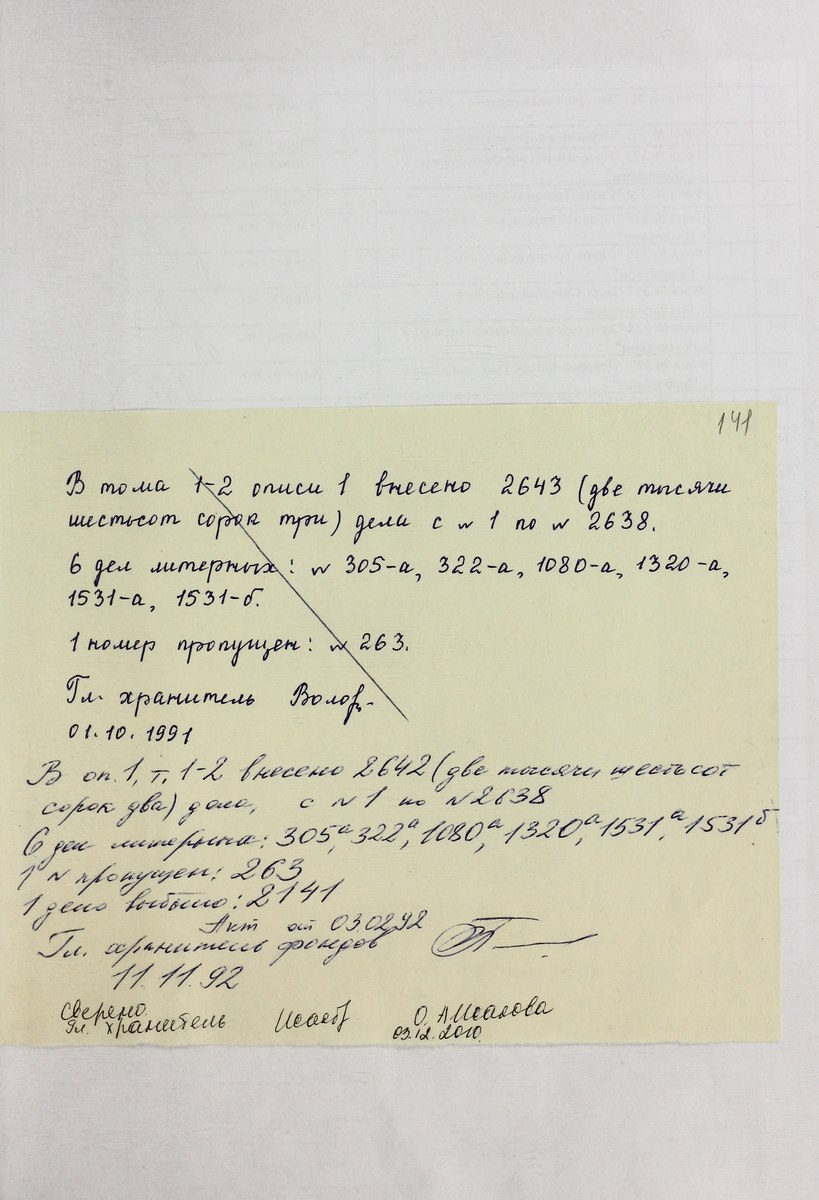 141
В тома 1-2 описи 1 внесено 2643 (две тысячи
шестьсот сорок три) дела с № 1 по № 2638.
6 дел литерных: № 305-а, 322-а, 1080-а, 1320-а,
1531-а, 1531-б.
1 номер пропущен: № 263.
Гл. хранитель
01.10.1991
В оп. 1, т. 1-2 внесено 2642 (две тысячи шестьсот
сорок два) дела, с № 1 по № 2638
6 дел литерных: 305а, 322а, 1080а, 1320а, 1531а, 1531б
1 № пропущен: 263
1 дело выбыло: 2141
Акт от 03.02.92
Гл. хранитель фондов
11.11.92
Сверено.
Гл. хранитель О. А Исакова
03.12.2010.